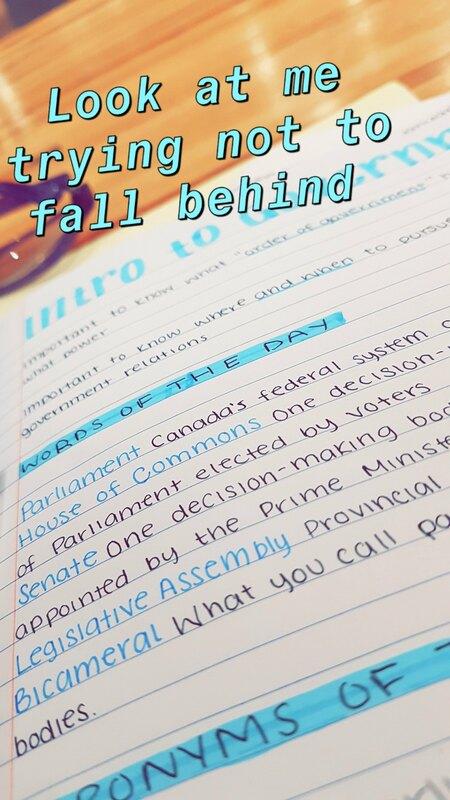 Look at me
trying not to
fall behind
Intro to
important to know what "order of government"
what power
important to know where and when to pursue
government relations
WORDS OF THE DAY
Parliament Canada's federal system
House of Commons One decision-
of Parliament elected by voters
Senate One decision-making
appointed by the Prime
Legislative Assembly Provincial
Bicameral What you call
bodies.
OF